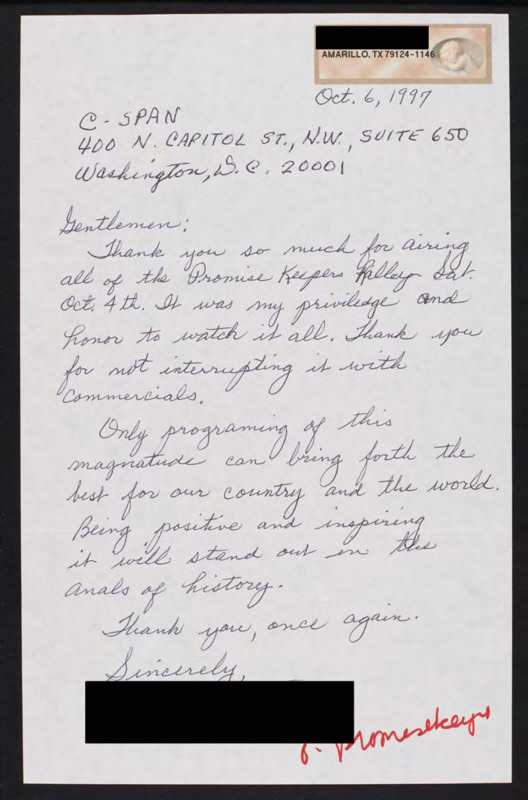 AMARILLO, TX 79124-1146
Oct. 6, 1997
C-SPAN
400 N. CAPITOL ST., N.W., SUITE 650
Washington, D.C. 20001
Gentlemen:
Thank you so much for airing
all of the Promise Keepers Ralley Sat.
Oct. 4th. It was my priviledge and
honor to watch it all. Thank you
for not interrupting it with
commercials.
Only programing of this
magnatude can bring forth the
best for our country and the world.
Being positive and inspiring
it will stand out in the
anals of history.
Thank you, once again.
Sincerely,
promesekeeps